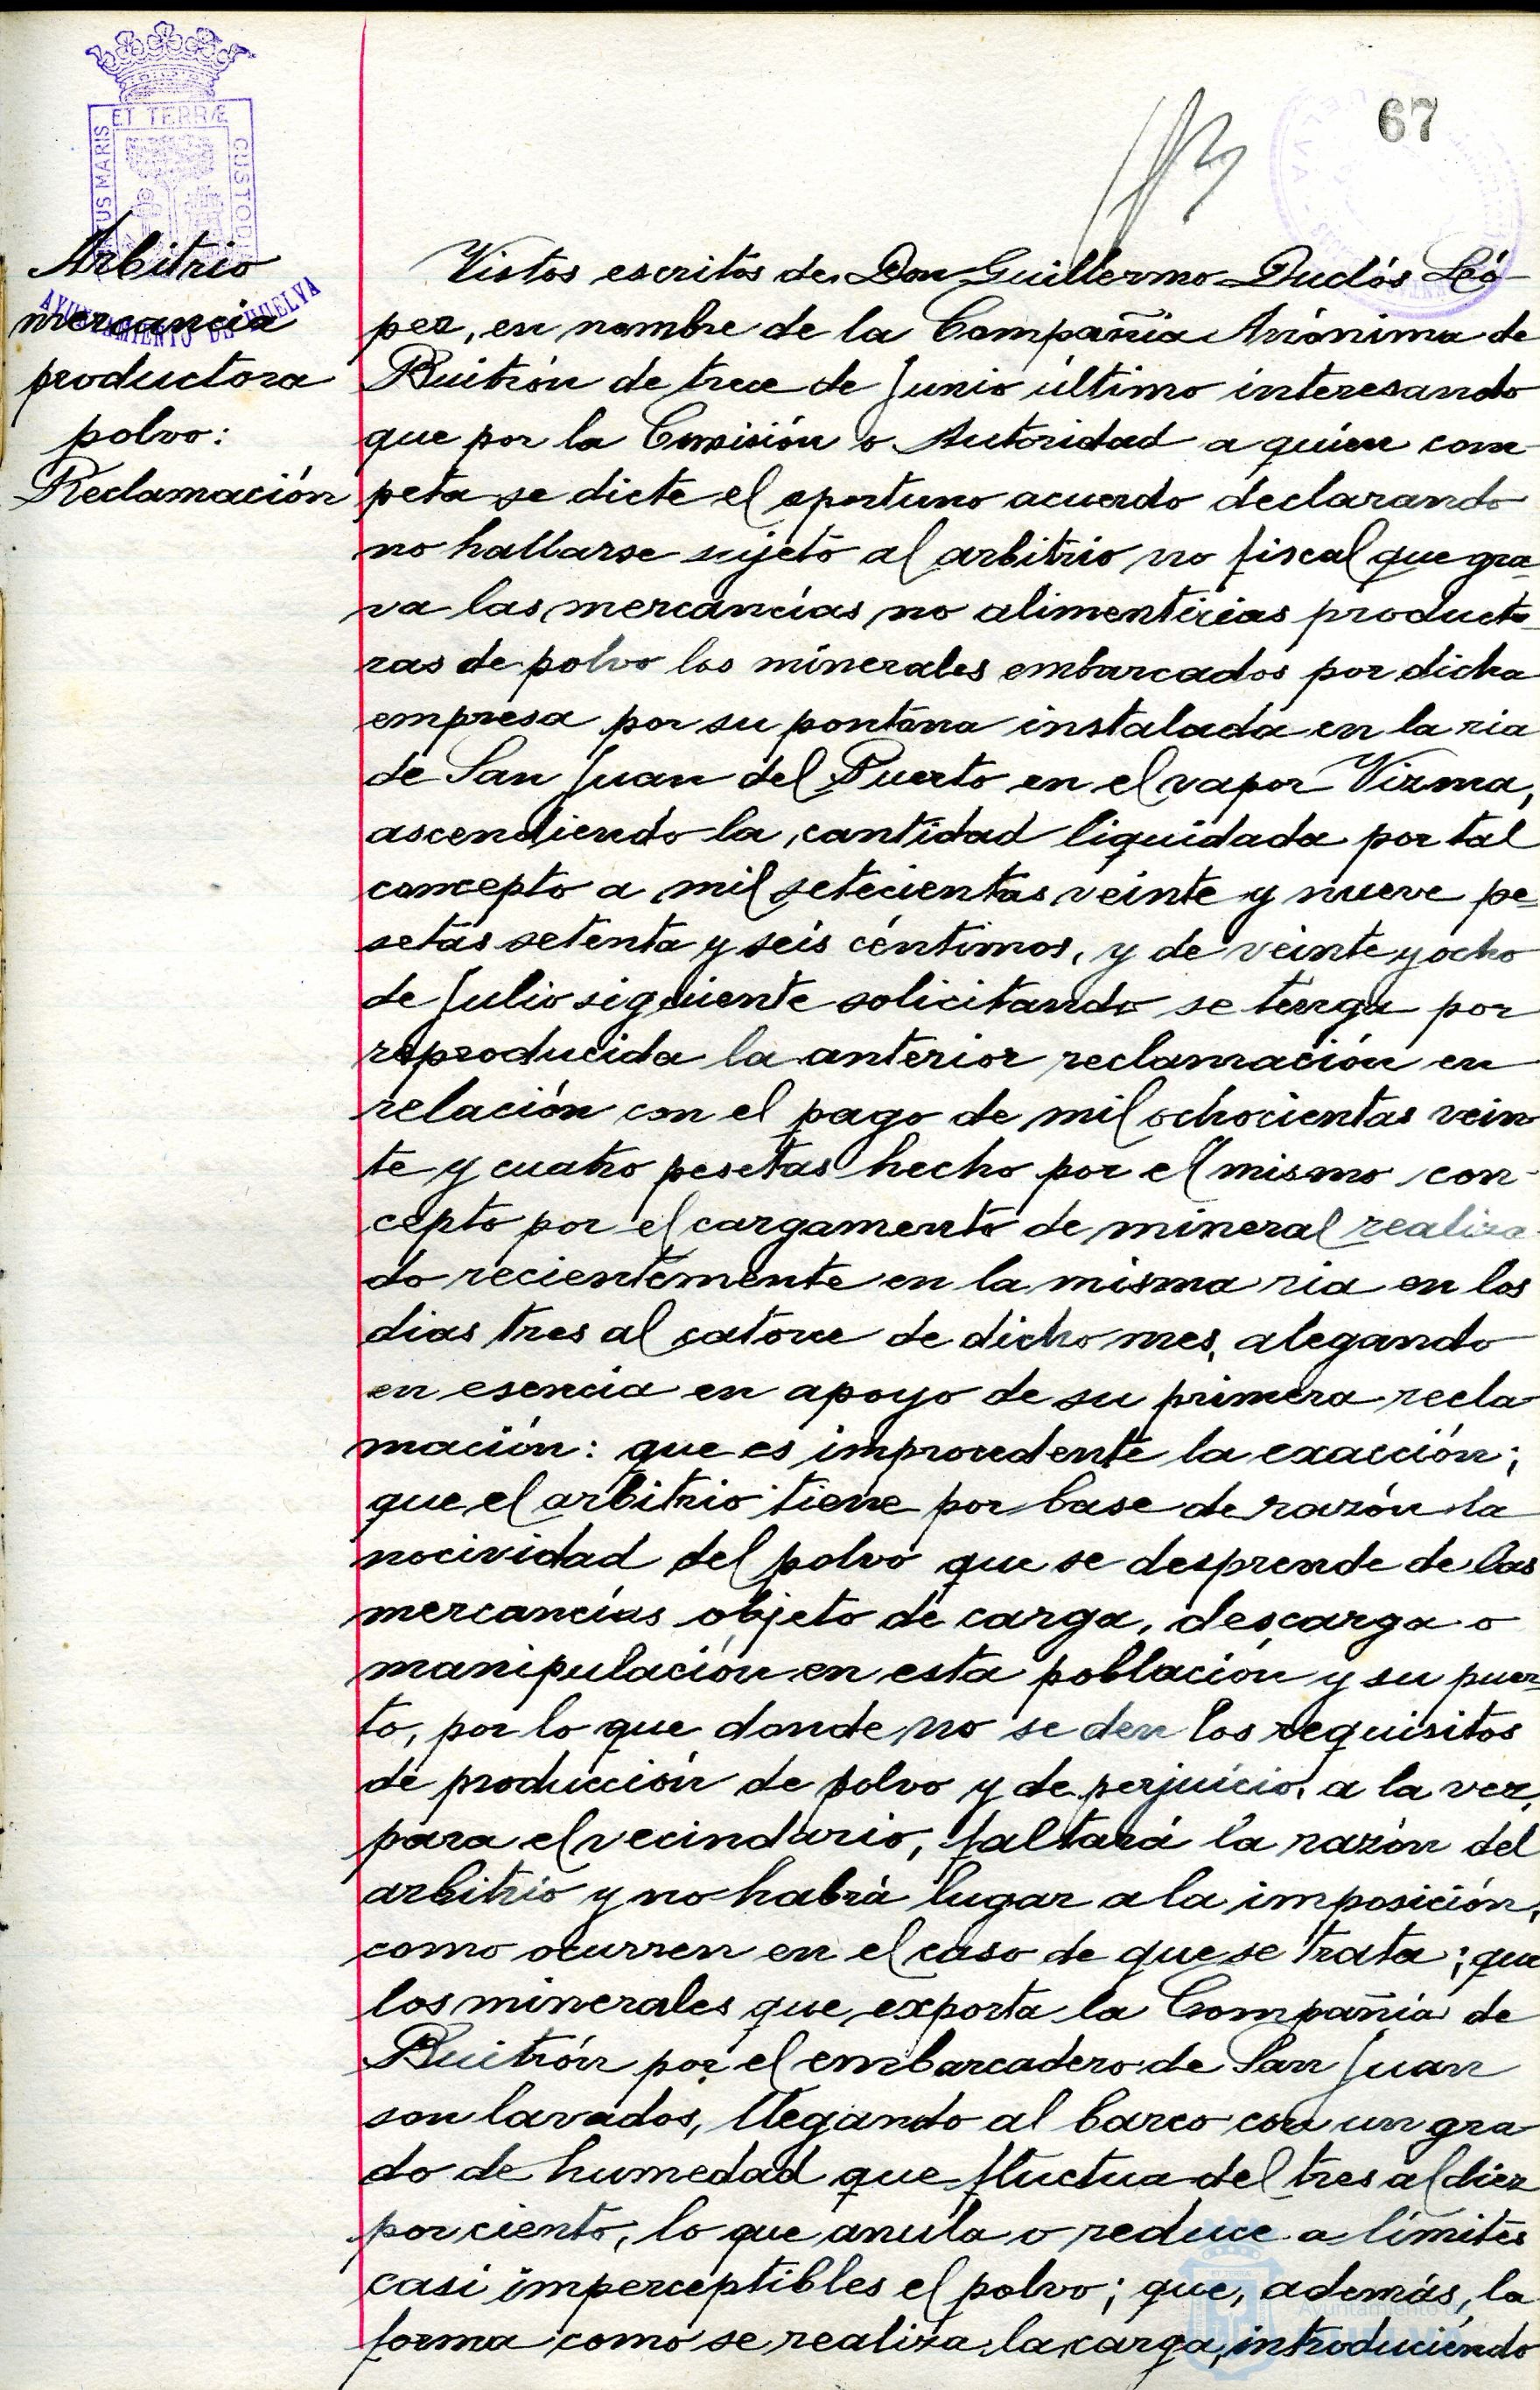 67
ET TERRÆ
TUS MARIS
CUSTODI
AYUNTAMIENTO DE HUELVA
Arbitrio
mercancia
productora
polvo:
Reclamación
Vistos escritos de Don Guillermo Duclós Ló-
pez, en nombre de la Compañia Anónima de
Buitrón de trece de Junio último interesando
que por la Comisión o Autoridad a quien com-
peta se dicte el oportuno acuerdo declarando
no hallarse sujeto al arbitrio no fiscal que gra-
va las mercancías no alimenticias producto-
ras de polvo los minerales embarcados por dicha
empresa por su pontona instalada en la ria
de San Juan del Puerto en el vapor Virma,
ascendiendo la cantidad liquidada por tal
concepto a mil setecientas veinte y nueve pe-
setas setenta y seis céntimos, y de veinte y ocho
de Julio siguiente solicitando se tenga por
reproducida la anterior reclamación en
relación con el pago de mil ochocientas vein
te y cuatro pesetas hecho por el mismo con-
cepto por el cargamento de mineral realiza-
do recientemente en la misma ria en los
dias tres al catorce de dicho mes, alegando
en esencia en apoyo de su primera recla-
mación: que es improcedente la exacción;
que el arbitrio tiene por base de razón la
nocividad del polvo que se desprende de las
mercancías objeto de carga, descarga o
manipulación en esta población y su puer-
to, por lo que donde no se den los requisitos
de producción de polvo y de perjuicio, a la vez,
para el vecindario, faltará la razón del
arbitrio y no habrá lugar a la imposición,
como ocurren en el caso de que se trata; que
los minerales que exporta la Compañia de
Buitrón por el embarcadero de San Juan
son lavados, llegando al barco con un gra
do de humedad que fluctua del tres al diez
por ciento, lo que anula o reduce a límites
casi imperceptibles el polvo; que, además, la
forma como se realiza la carga, introduciendo
Ayuntamiento de
HUELVA